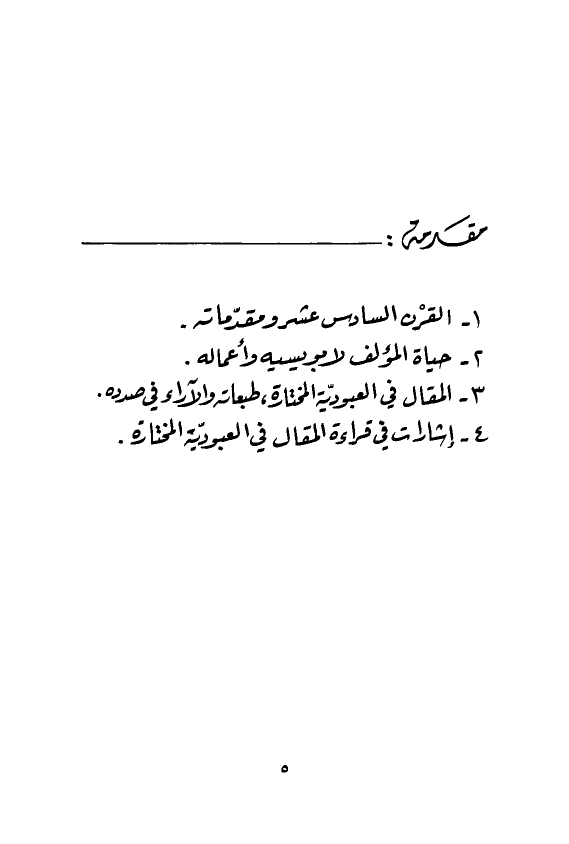 مقدمة :
١ـ القرْن السادس عشر ومقدّماته .
٢ـ حياة المؤلف لابويسيه وأعماله .
٣ـ المقال في العبوديّة المختارة، طبعاته والآراء في صدده.
٤ـ إشارات في قراءة المقال في العبوديّة المختارة .
٥